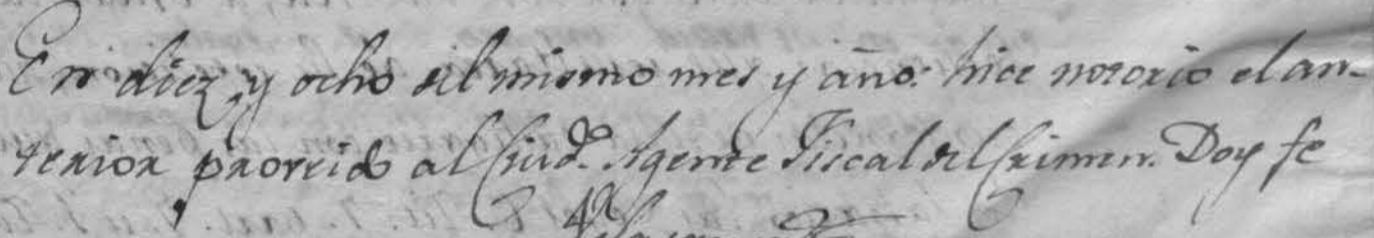 En diez y ocho del mismo mes y año: hice notorio el an-
terior proveido al Ciud.º Agente Fiscal del Crimen. Doy fe